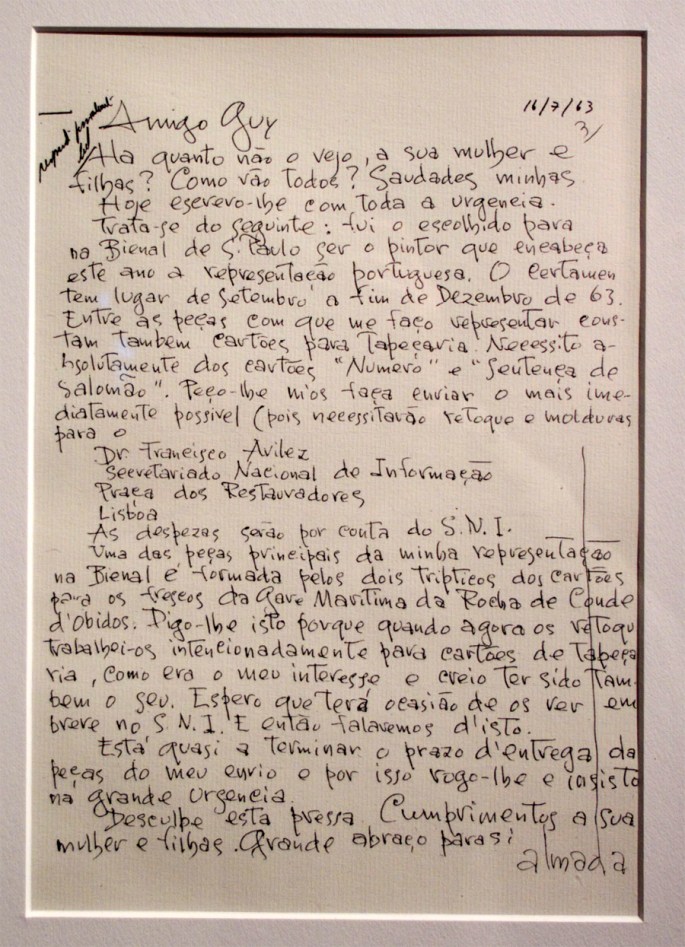 16/7/63
3/
Amigo Guy
Ha quanto não o vejo, a sua mulher e
filhas? Como vão todos? Saudades minhas.
Hoje escrevo-lhe com toda a urgencia.
Trata-se do seguinte: fui o escolhido para
na Bienal de S. Paulo ser o pintor que encabeça
este ano a representação portuguesa. O certamen
tem lugar de Setembro a fim de Dezembro de 63.
Entre as peças com que me faço representar cons-
tam tambem cartões para Tapeçaria. Necessito a-
bsolutamente dos cartões "Numero" e "Sentença de
Salomão". Peço-lhe m'os faça enviar o mais ime-
diatamente possivel (pois necessitarão retoque e molduras
para o
Dr. Francisco Avilez
Secretariado Nacional de Informação
Praça dos Restauradores
Lisboa
As despezas serão por conta do S.N.I.
Uma das peças principais da minha representação
na Bienal é formada pelos dois tripticos dos cartões
para os frescos da Gare Maritima da Rocha de Conde
d'Obidos. Digo-lhe isto porque quando agora os retoqu
trabalhei-os intencionadamente para cartões de tapeça
ria, como era o meu interesse e creio ter sido tam-
bem o seu. Espero que terá ocasião de os ver em
breve no S.N.I. E então falaremos d'isto.
Está quasi a terminar o prazo d'entrega da
peças do meu envio e por isso rogo-lhe e insisto
na grande urgencia.
Desculpe esta pressa. Cumprimentos a sua
mulher e filhas. Grande abraço para si
almada